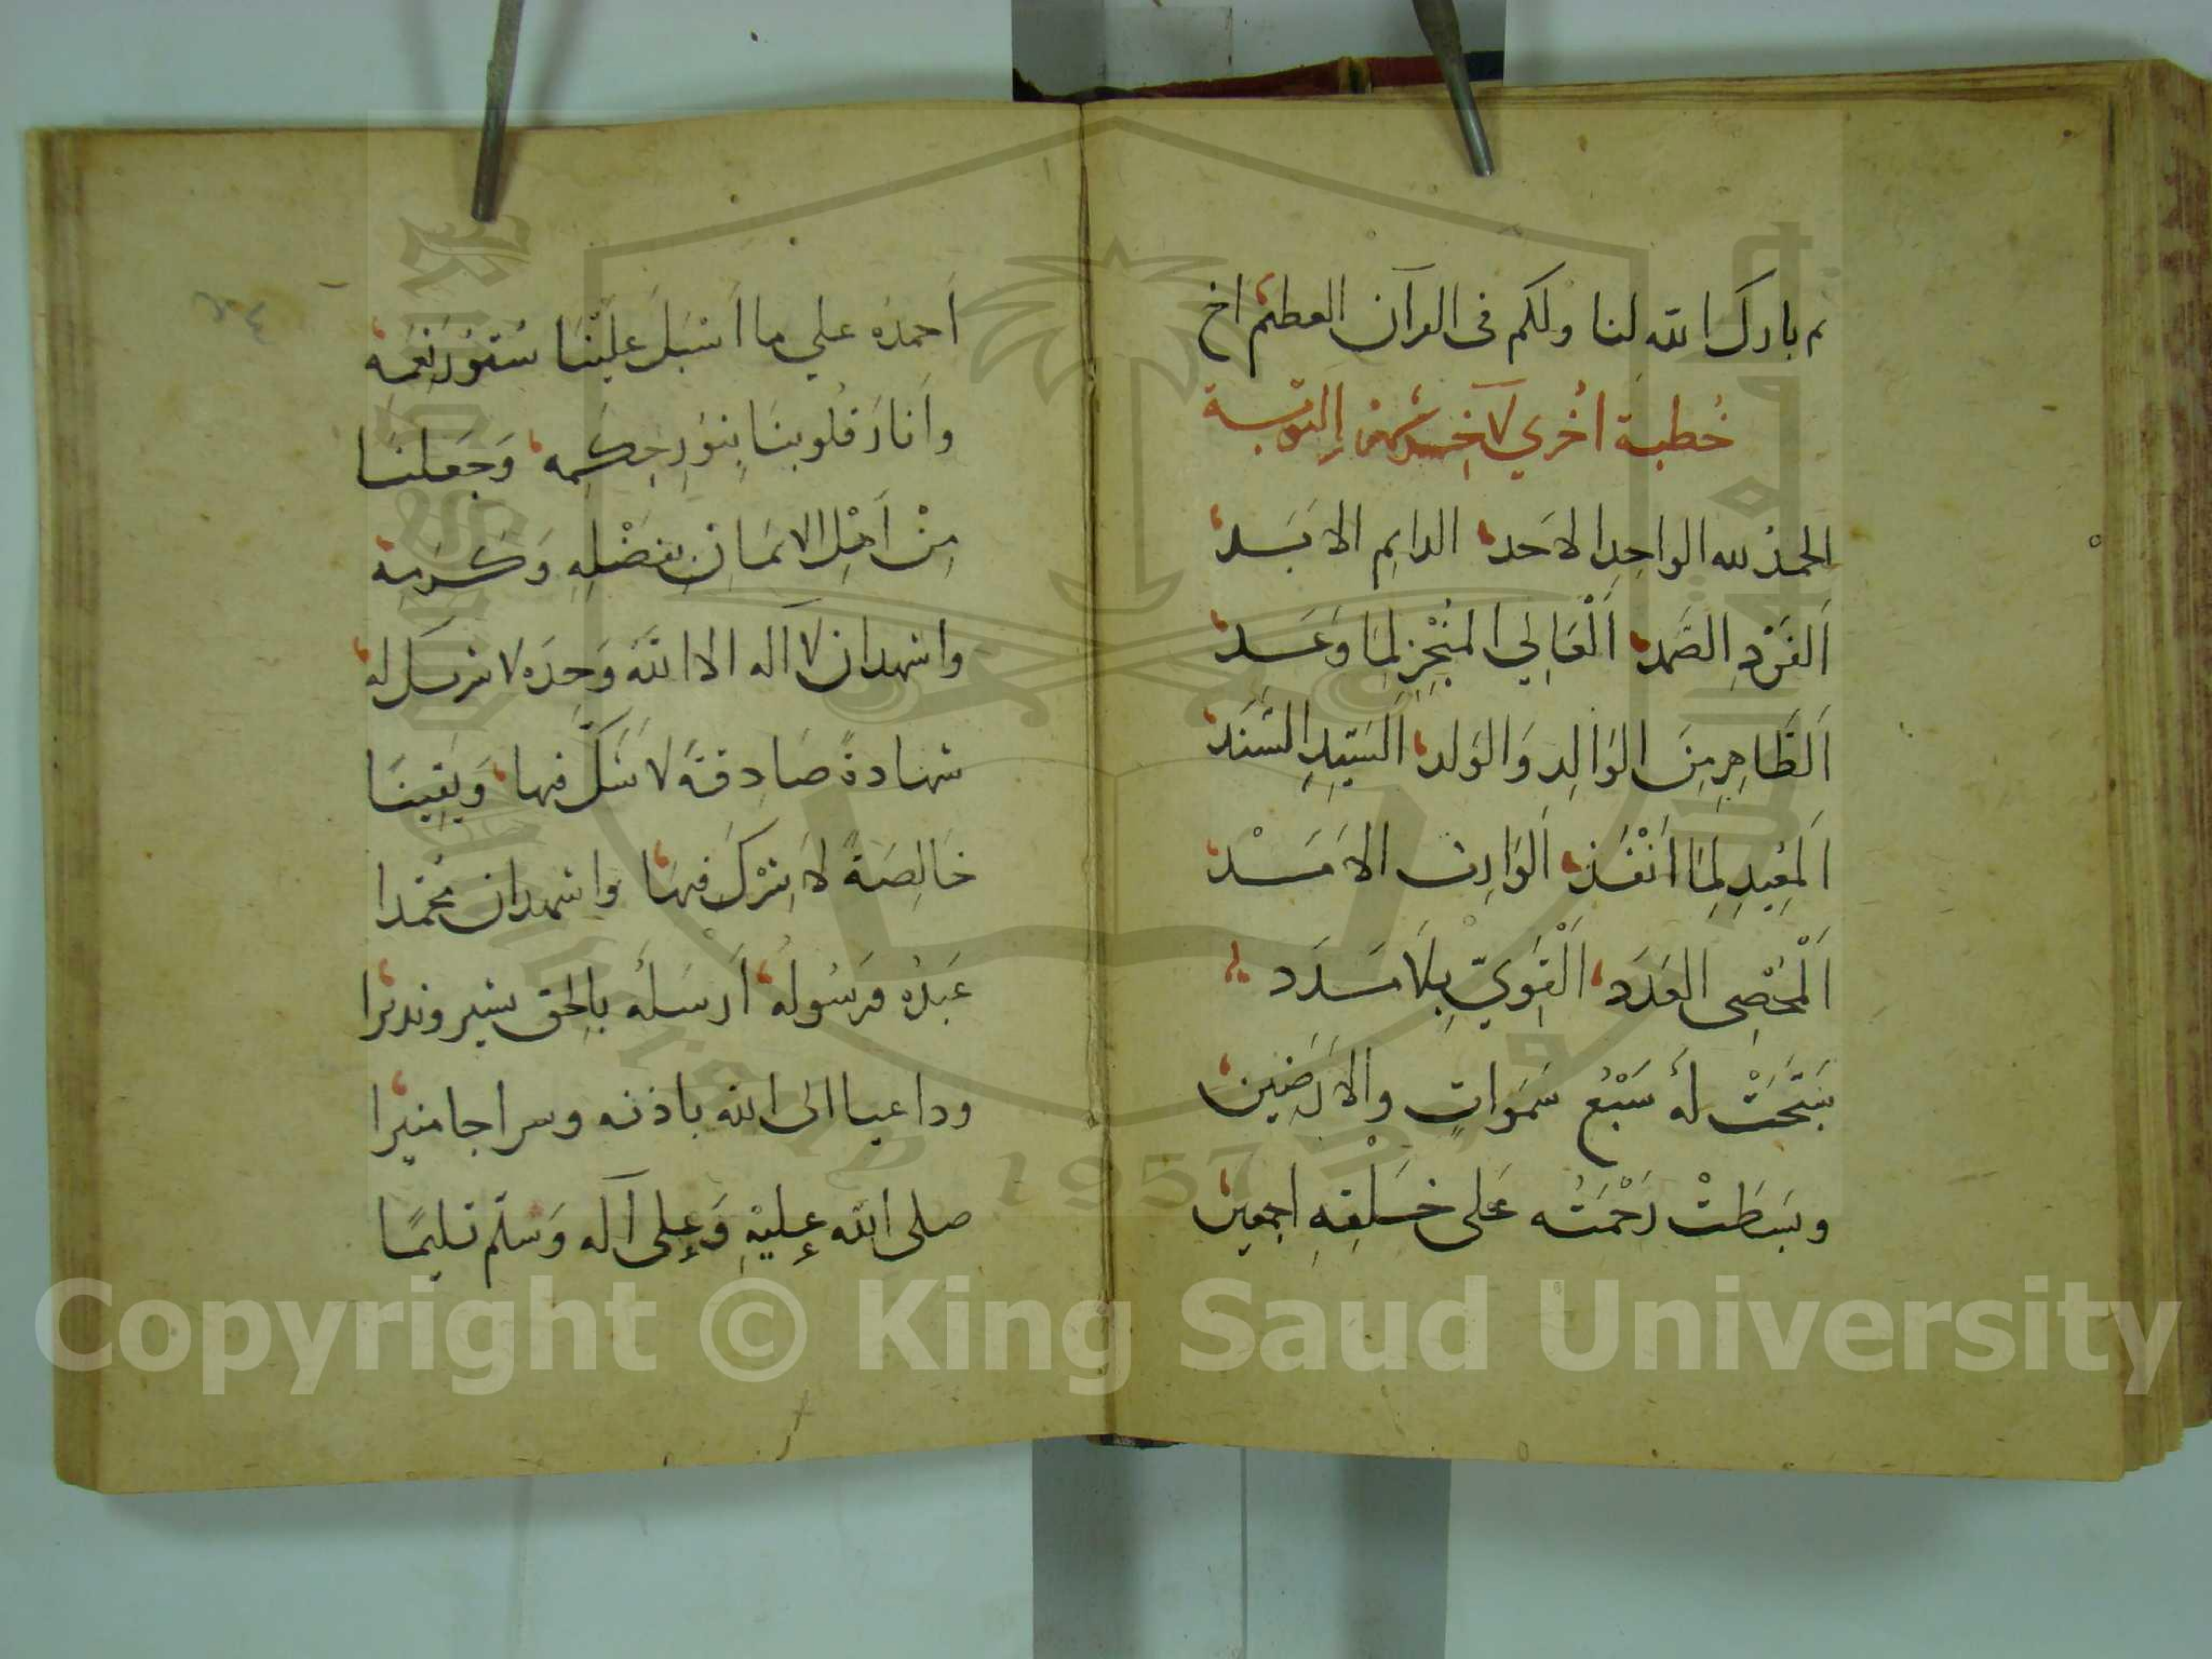 م بارك الله لنا ولكم فى القرآن العظيم اخ
خُطبة اُخري لآخِر التوبة
الحمدُ لله الواحِدِ الاحَد الدايِم الابَد
اَلفَرْدِ الصَّمد اَلْعَالِي المُنْجِزِ لِمَا وَعَد
اَلطَّاهِرِ مِنَ الوَالِدِ وَالوَلد اَلسَيّدِ السَّنَد
اَلمُعِيدِ لِمَا اَنْفَذ اَلوَارِث الاَمَسْد
اَلْمُحْصِى العَدَد اَلْقَوِيّ بِلاَ مَدَد
سَبَّحَتْ لَهُ سَبْعُ سَمَوَاتٍ والاَرَضِين
وبَسَطَتْ رَحْمَتُه عَلى خَلقِهِ اجمعين
٢٤
اَحمدُه علي ما اَسْبَلَ عَلَيْنَا سُتُوْرَ نِعَمِهِ
واَنارَ قُلوبنَا بِنُورِ حِكَمِه وَجَعَلنَا
مِنْ اَهْلِ الايمَانِ بفَضْلِهِ وَكَرَمِه
واشهد ان لا اله الا الله وَحدَه لا شريك له
شهادةً صَادِقةً لا شَكَّ فيها وَيَقِينًا
خَالِصَةً لاَ شِرْكَ فيهَا واشهد ان محمدا
عَبدُه وَرَسُولُه اَرسَلهُ بالحق بشير ونديرا
وداعيا الى الله باذنه وسراجا منيرا
صلى الله عليْهِ وَعلى آله وَسلّم تسليمًا
Copyright © King Saud University
1957